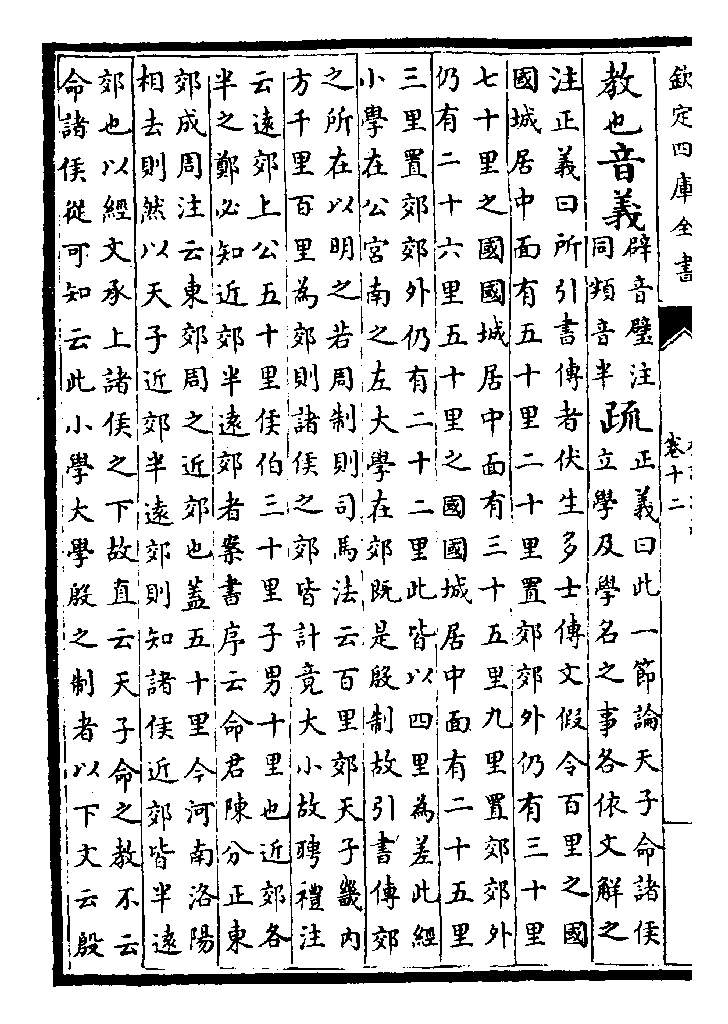 欽定四庫全書
卷十二
教也音義
辟音璧注
同頖音半
疏
正義曰此一節論天子命諸侯
立學及學名之事各依文解之
注正義曰所引書傳者伏生多士傳文假令百里之國
國城居中面有五十里二十里置郊郊外仍有三十里
七十里之國國城居中面有三十五里九里置郊郊外
仍有二十六里五十里之國國城居中面有二十五里
三里置郊郊外仍有二十二里此皆以四里為差此經
小學在公宮南之左大學在郊既是殷制故引書傳郊
之所在以明之若周制則司馬法云百里郊天子畿內
方千里百里為郊則諸侯之郊皆計竟大小故聘禮注
云遠郊上公五十里侯伯三十里子男十里也近郊各
半之鄭必知近郊半遠郊者案書序云命君陳分正東
郊成周注云東郊周之近郊也蓋五十里今河南洛陽
相去則然以天子近郊半遠郊則知諸侯近郊皆半遠
郊也以經文承上諸侯之下故直云天子命之教不云
命諸侯從可知云此小學大學殷之制者以下文云殷